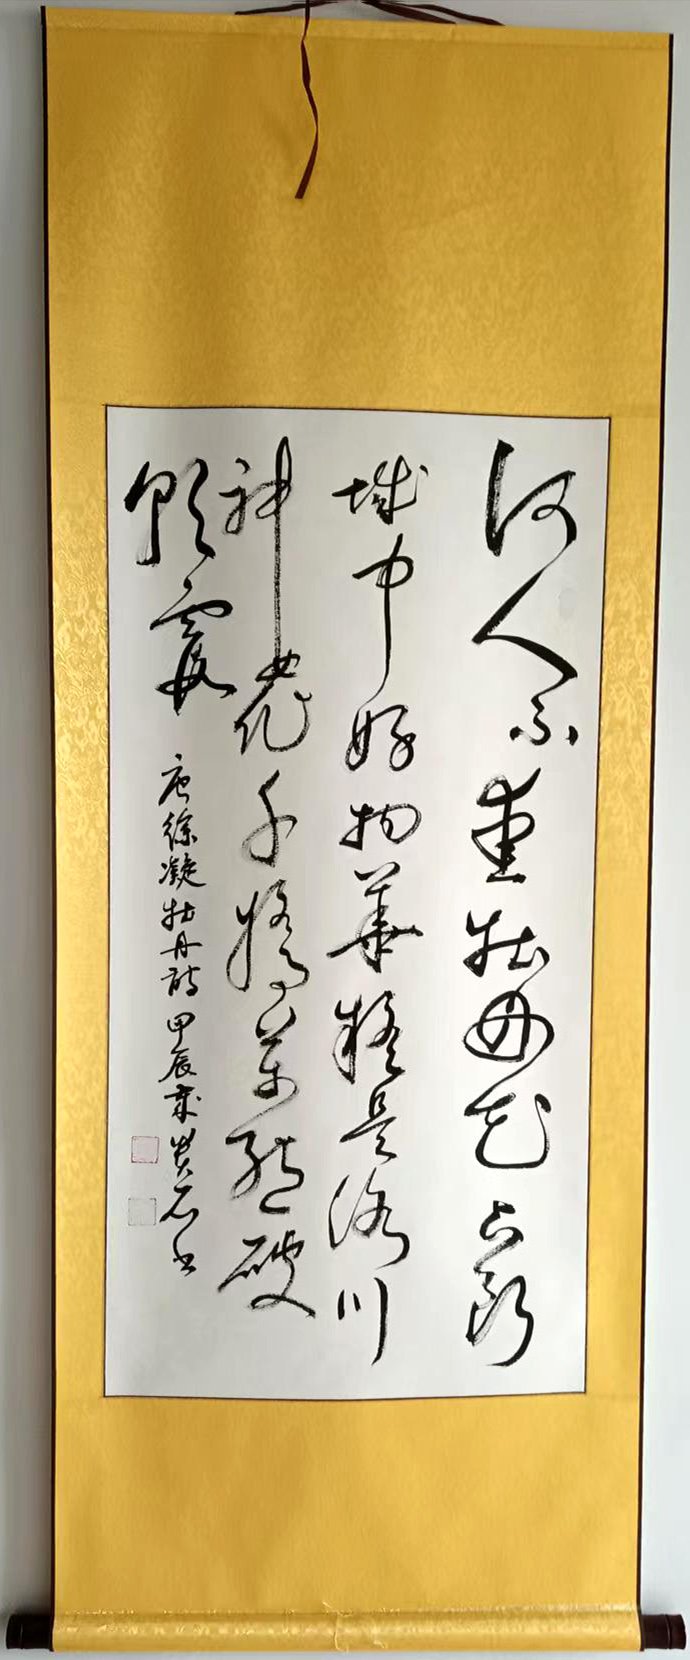 何人不愛牡丹花占斷
城中好物華疑是洛川
神女作千嬌萬態破
朝霞
唐徐凝牡丹詩甲辰歲石书